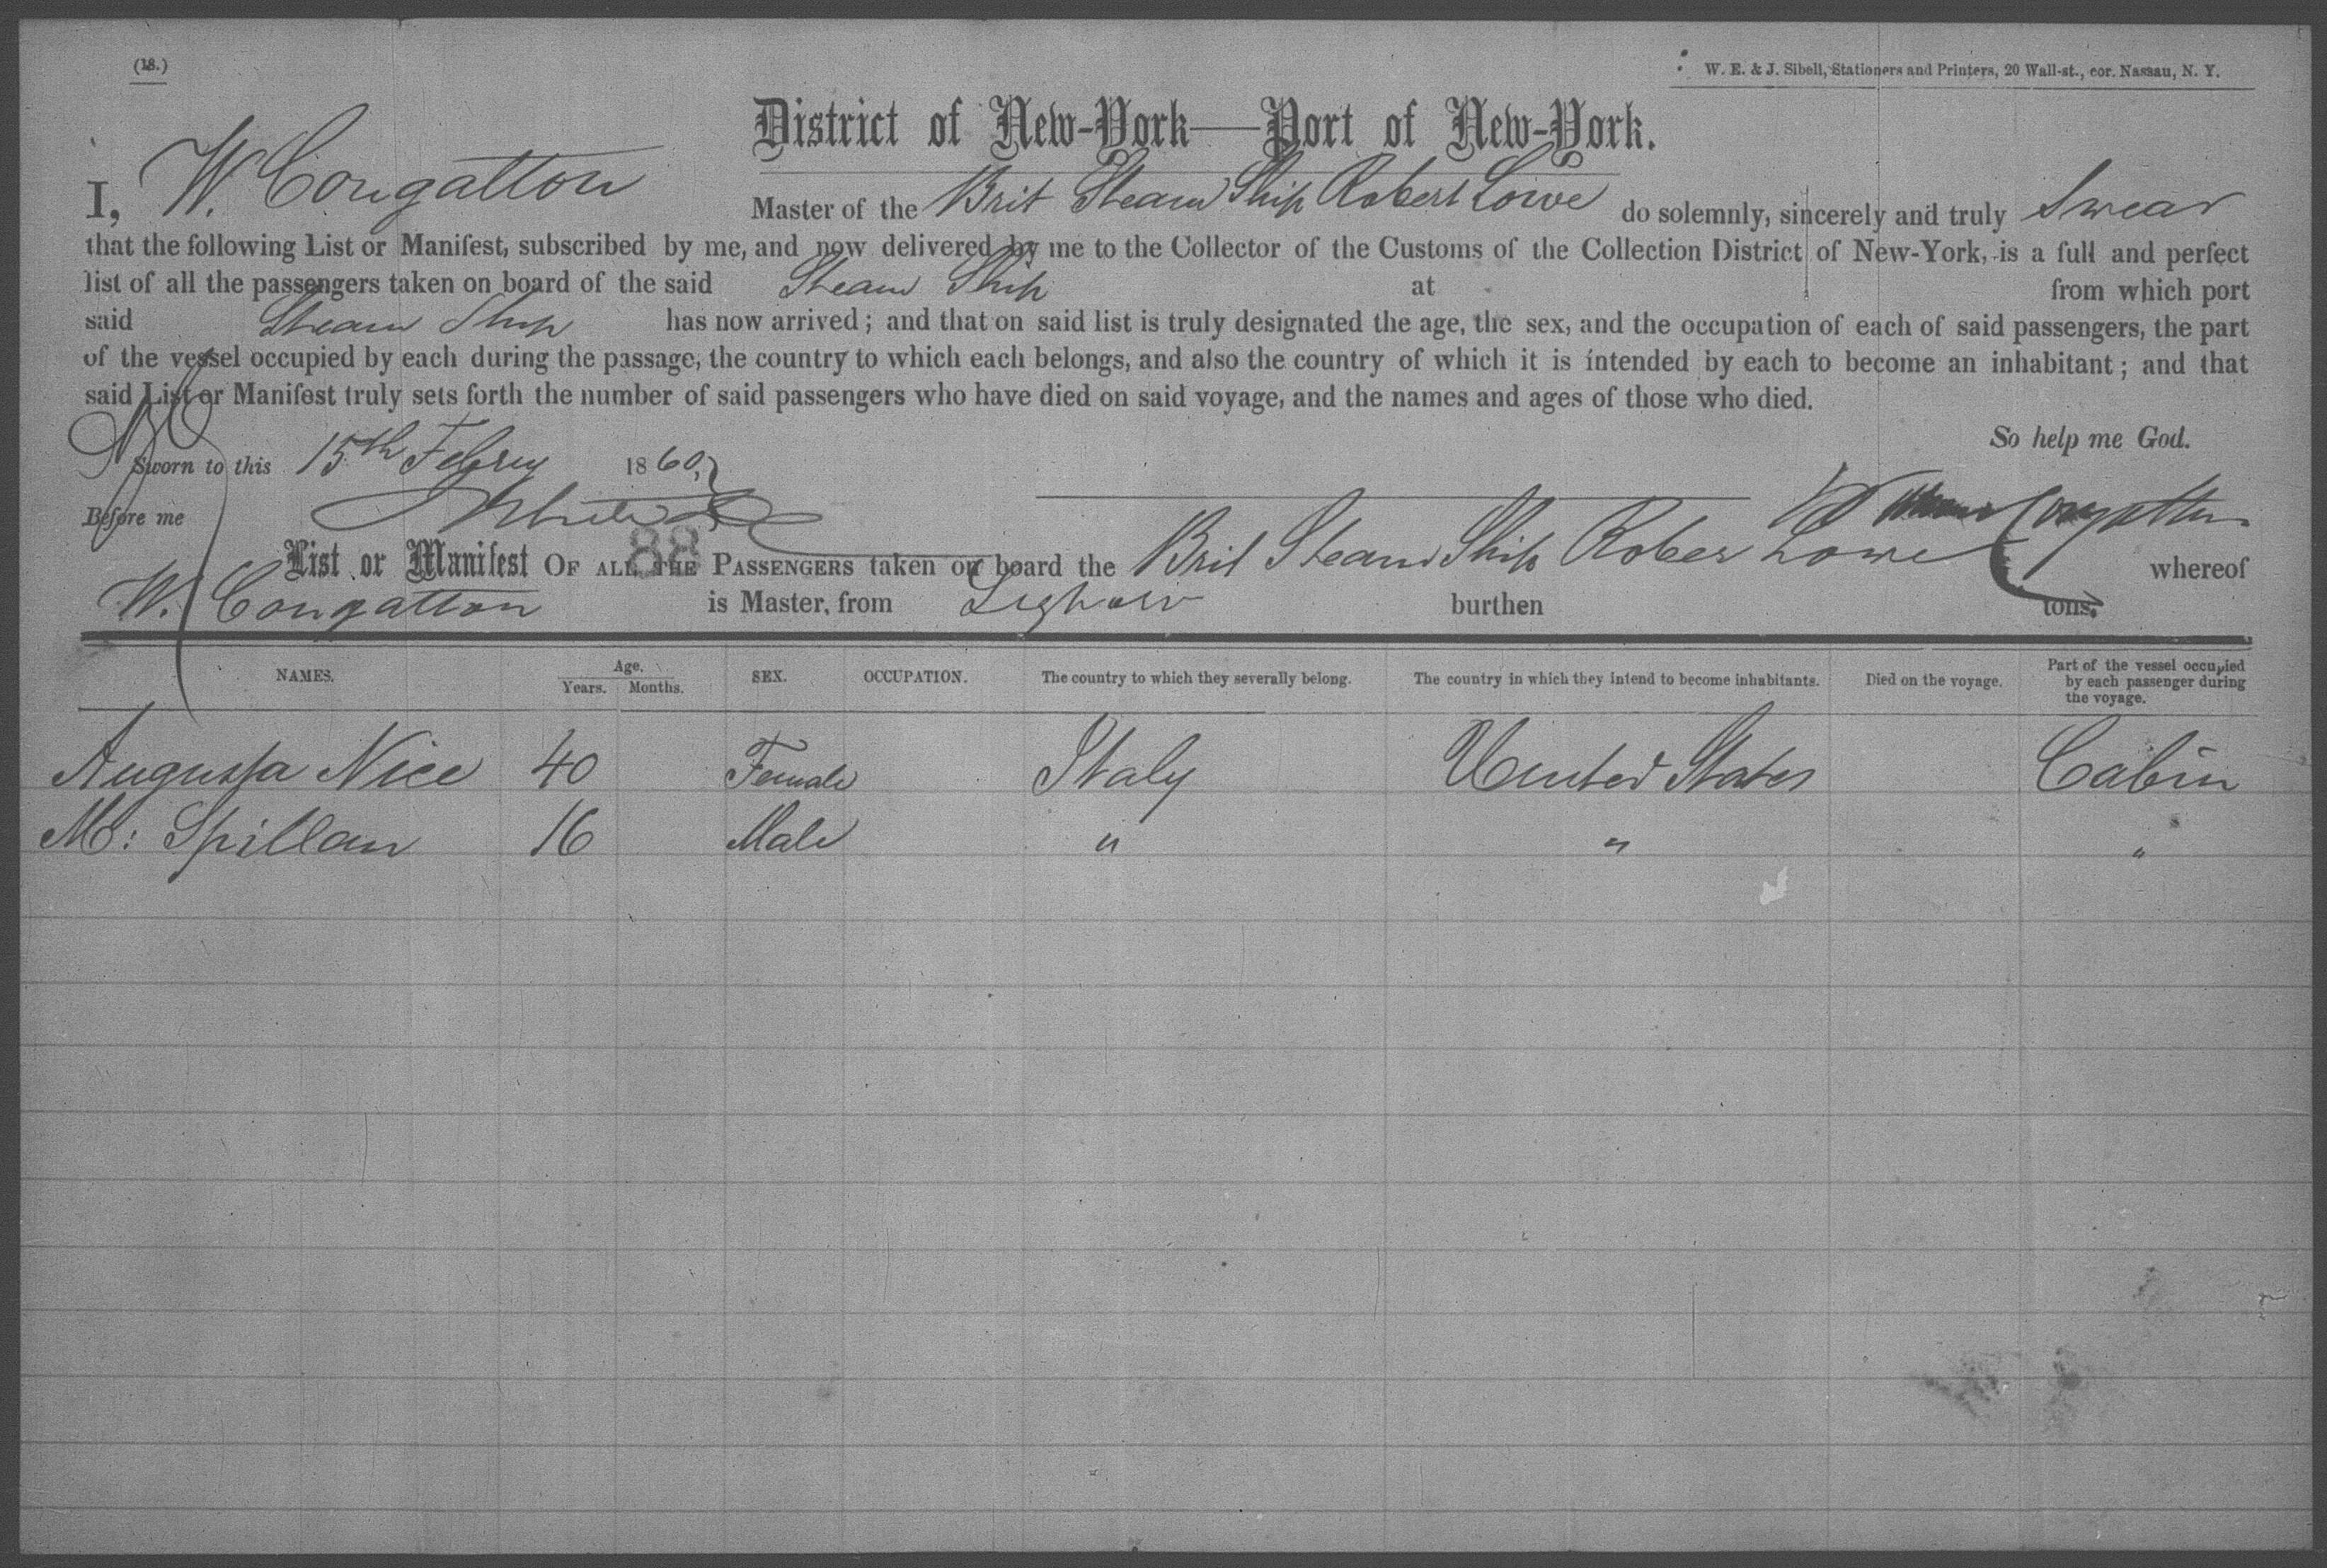 (18.)
W. E. & J. Sibell, Stationers and Printers, 20 Wall-st., cor. Nassau, N. Y.
District of New-York—Port of New-York.
I, W. Congalton Master of the Brit Steam Ship Robert Lowe do solemnly, sincerely and truly Swear
that the following List or Manifest, subscribed by me, and now delivered by me to the Collector of the Customs of the Collection District of New-York, is a full and perfect
list of all the passengers taken on board of the said Steam Ship at from which port
said Steam Ship has now arrived; and that on said list is truly designated the age, the sex, and the occupation of each of said passengers, the part
of the vessel occupied by each during the passage, the country to which each belongs, and also the country of which it is intended by each to become an inhabitant; and that
said List or Manifest truly sets forth the number of said passengers who have died on said voyage, and the names and ages of those who died.
So help me God.
Sworn to this 15th Febry 1860,
Before me
88
List or Manifest OF ALL THE PASSENGERS taken on board the Brit Steam Ship Rober Lowe whereof
W. Congatton is Master, from Leghorn burthen tons.
NAMES. Age. Years. Months. SEX. OCCUPATION. The country to which they severally belong. The country in which they intend to become inhabitants. Died on the voyage. Part of the vessel occupied by each passenger during the voyage.
Augusta Nice 40 Female Italy United States Cabin
M: Spillan 16 Male " " "